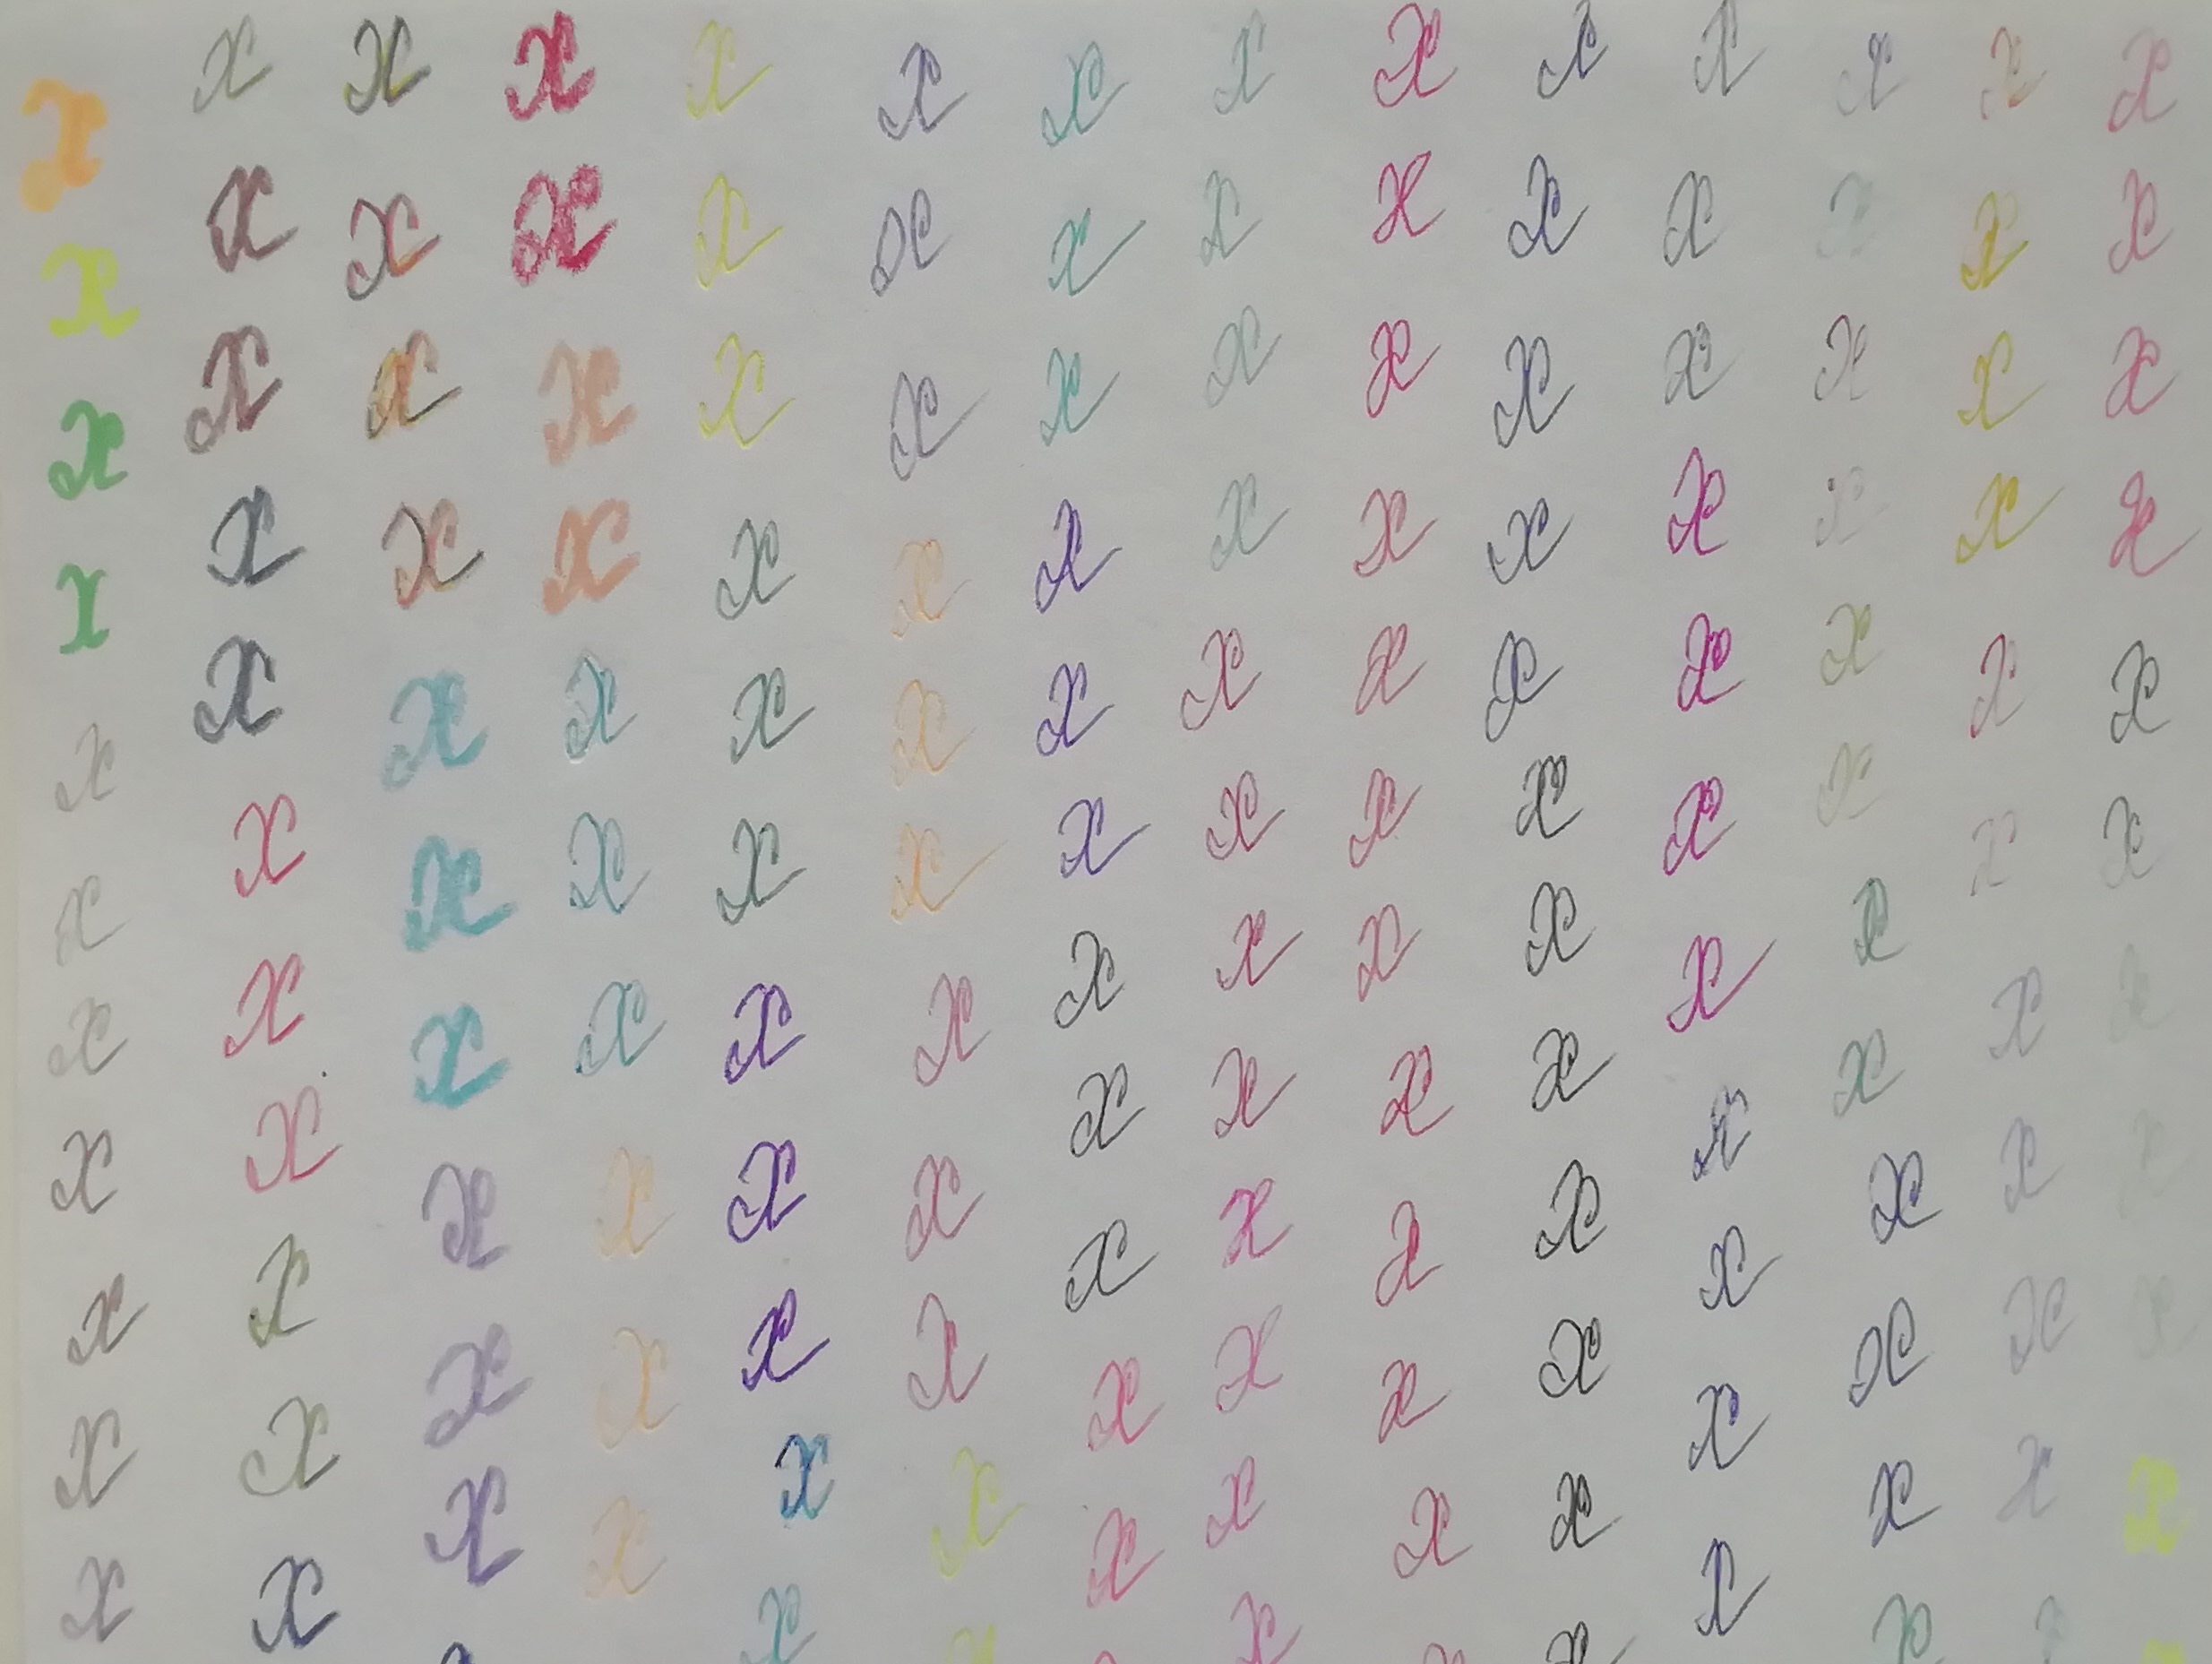 x x x x x x x x x x x x x x
x x x x x x x x x x x x x x
x x x x x x x x x x x x x x
x x x x x x x x x x x x x x
x x x x x x x x x x x x x x
x x x x x x x x x x x x x x
x x x x x x x x x x x x x x
x x x x x x x x x x x x x x
x x x x x x x x x x x x x x
x x x x x x x x x x x x x x
x x x x x x x x x x x x x x